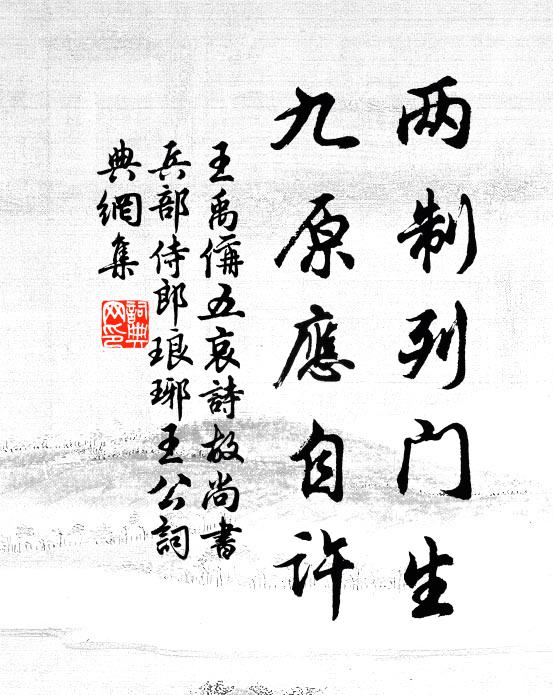 两制列门生
九原應自许
王禹偁五哀詩故尚書
兵部侍郎琅琊王公詞
典網集
詞典網印